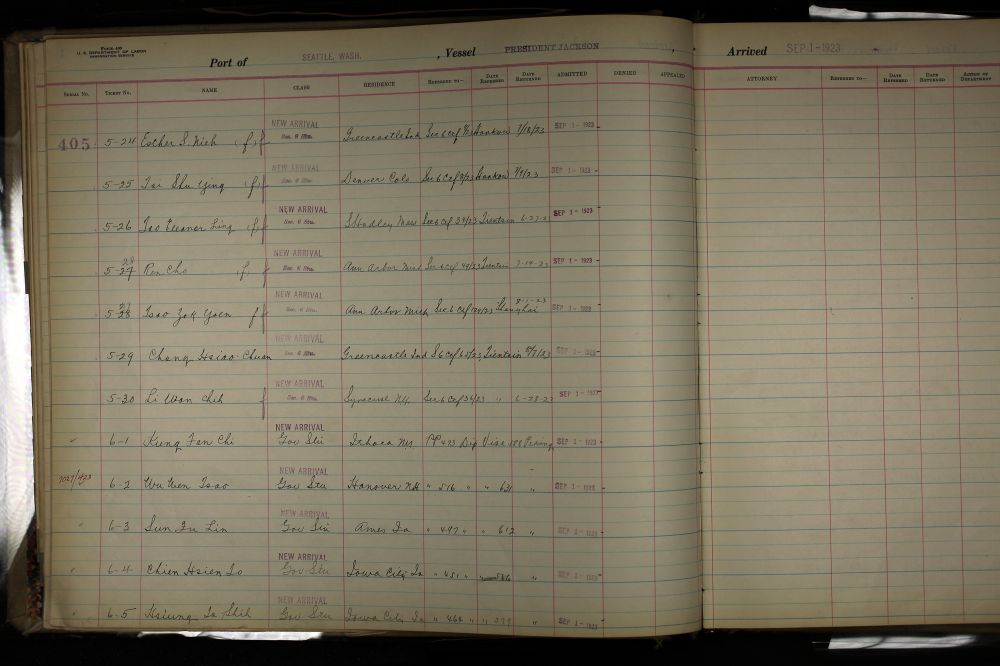 Form 409
U. S. DEPARTMENT OF LABOR
IMMIGRATION SERVICE
Port of SEATTLE, WASH. , Vessel PRESIDENT JACKSON , Arrived SEP 1-1923
SERIAL NO. TICKET NO. NAME CLASS RESIDENCE REFERRED TO— DATE REFERRED DATE RETURNED ADMITTED DENIED APPEALED ATTORNEY REFERRED TO— DATE REFERRED DATE RETURNED ACTION OF DEPARTMENT
NEW ARRIVAL
405 5-24 Esther S. Nieh (f) f Sec. 6 Stu. Greencastle Ind Sec 6 Cef Hankow 7/18/23 SEP 1-1923
NEW ARRIVAL
5-25 Tai Shu Ying (f) f Sec. 6 Stu. Denver Colo Sec 6 Cef Hankow /23 SEP 1-1923
NEW ARRIVAL
5-26 Tao Eleanor Ling (f) f Sec. 6 Stu. S Hadley Mass Sec 6 Cef 39/23 Tientsin 6-27-3 SEP 1-1923
NEW ARRIVAL
28
5-27 Ren Cho (f) f Sec. 6 Stu. Ann Arbor Mich Sec 6 Cef 49/23 Tientsin 7-14-23 SEP 1-1923
NEW ARRIVAL
27 8-1-23
5-28 Tsao Zok Yoen f f Sec. 6 Stu. Ann Arbor Mich Sec 6 Cef Shanghai SEP 1-1923
NEW ARRIVAL
5-29 Chang Hsiao Chuan Sec. 6 Stu. Greencastle Ind S 6 Cef 63/23 Tientsin 8/7/23 SEP 1-1923
NEW ARRIVAL
5-30 Li Wan Chih f Sec. 6 Stu. Syracuse N.Y. Sec 6 Cef 34/23 " 6-28-23 SEP 1-1923
NEW ARRIVAL
✓ 6-1 Kung Fan Chi Gov Stu Ithaca NY. PP 473 Dip Vise 588 Peking SEP 1-1923
NEW ARRIVAL
7027/423 6-2 Wu Wen Tsao Gov Stu Hanover NH " 516 " " 631 " SEP 1-1923
NEW ARRIVAL
" 6-3 Sun Lin Gov Stu Ames Ia " 497 " " 612 " SEP 1-1923
NEW ARRIVAL
" 6-4 Chien Hsien Lo Gov Stu Iowa City Ia " 451 " 566 " SEP 1-1923
NEW ARRIVAL
" 6-5 Hsiung Ta Shih Gov Stu Iowa City Ia " 464 " " 579 " SEP 1-1923